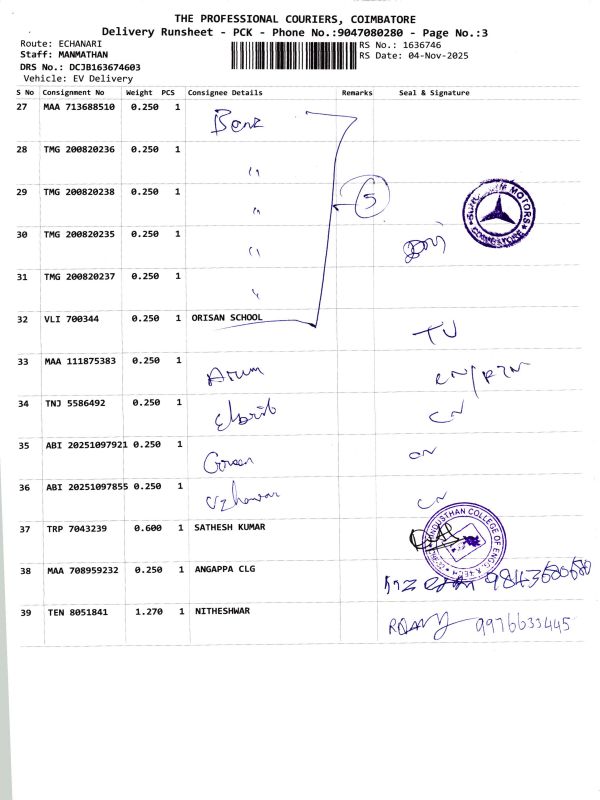 THE PROFESSIONAL COURIERS, COIMBATORE
Delivery Runsheet - PCK - Phone No.:9047080280 - Page No.:3
Route: ECHANARI
RS No.: 1636746
Staff: MANMATHAN
RS Date: 04-Nov-2025
DRS No.: DCJB163674603
Vehicle: EV Delivery
S No Consignment No Weight PCS Consignee Details Remarks Seal & Signature
27 MAA 713688510 0.250 1 Benz
28 TMG 200820236 0.250 1 "
29 TMG 200820238 0.250 1 " 5
30 TMG 200820235 0.250 1 "
MOTORS
COIMBATORE
31 TMG 200820237 0.250 1 "
32 VLI 700344 0.250 1 ORISAN SCHOOL
33 MAA 111875383 0.250 1 Arum
34 TNJ 5586492 0.250 1 CN
35 ABI 20251097921 0.250 1 Green
36 ABI 20251097855 0.250 1 Uzhavar CN
37 TRP 7043239 0.600 1 SATHESH KUMAR
HINDUSTHAN COLLEGE OF ENGG & TECH
38 MAA 708959232 0.250 1 ANGAPPA CLG 9843680680
39 TEN 8051841 1.270 1 NITHESHWAR 9976633445